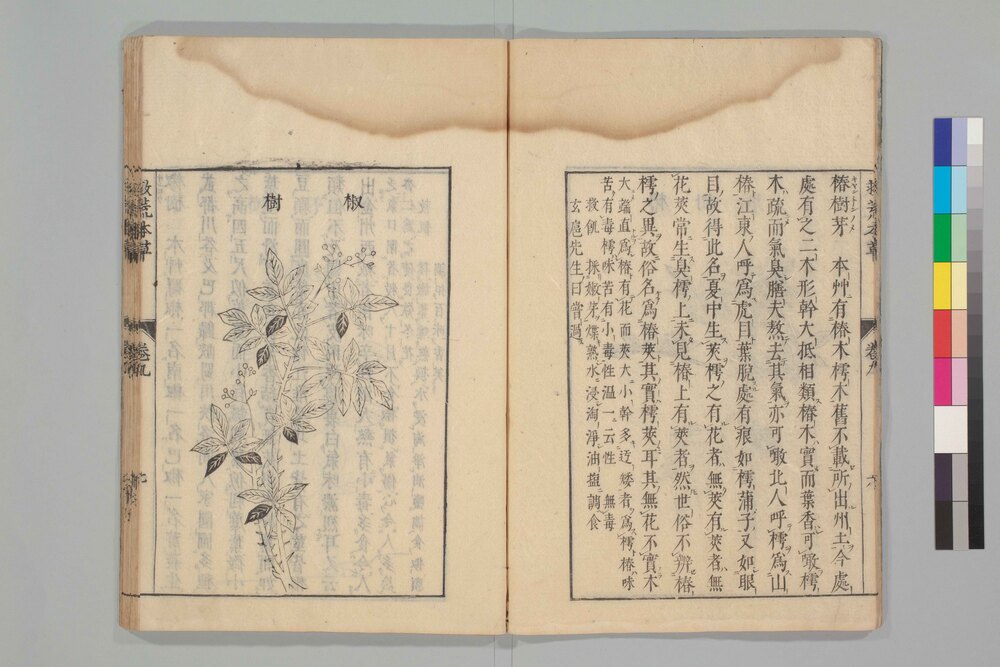 椿樹芽　本艸有椿木樗木舊不載所出州土今處
處有之二木形幹大抵相類椿木實而葉香可噉樗
木疏而氣臭膳夫熬去其氣亦可噉北人呼樗爲山
椿江東人呼爲虎目葉脫處有痕如樗蒲子又如眼
目故得此名夏中生莢樗之有花者無莢有莢者無
花莢常生臭樗上未見椿上有莢者然世俗不辨椿
樗之異故俗名爲椿莢其實樗莢耳其無花不實木
大端直爲椿有花而莢木小幹多迂矮者爲樗椿味
苦有毒樗味苦有小毒性溫一云性　無毒
救飢　採嫩芽煠熟水浸淘淨油鹽調食
玄扈先生曰嘗過
救荒本草
卷九
六
椒
樹
救荒本草
卷九
七